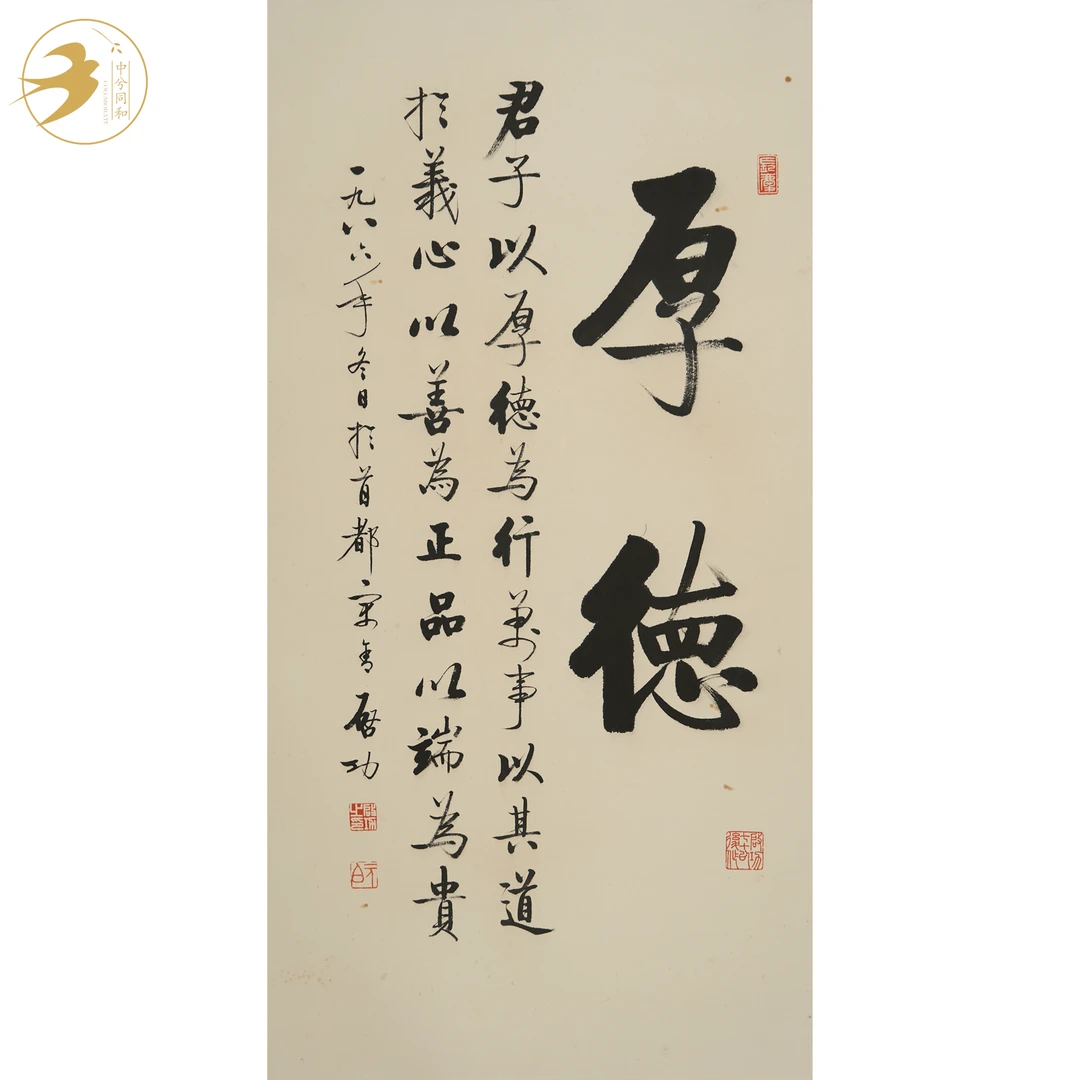 中兮同和
厚徳
君子以厚徳為行萬事以其道
於義心以善為正品以端為貴
一九八六年冬日於首都 啓功
啓功之印
元白